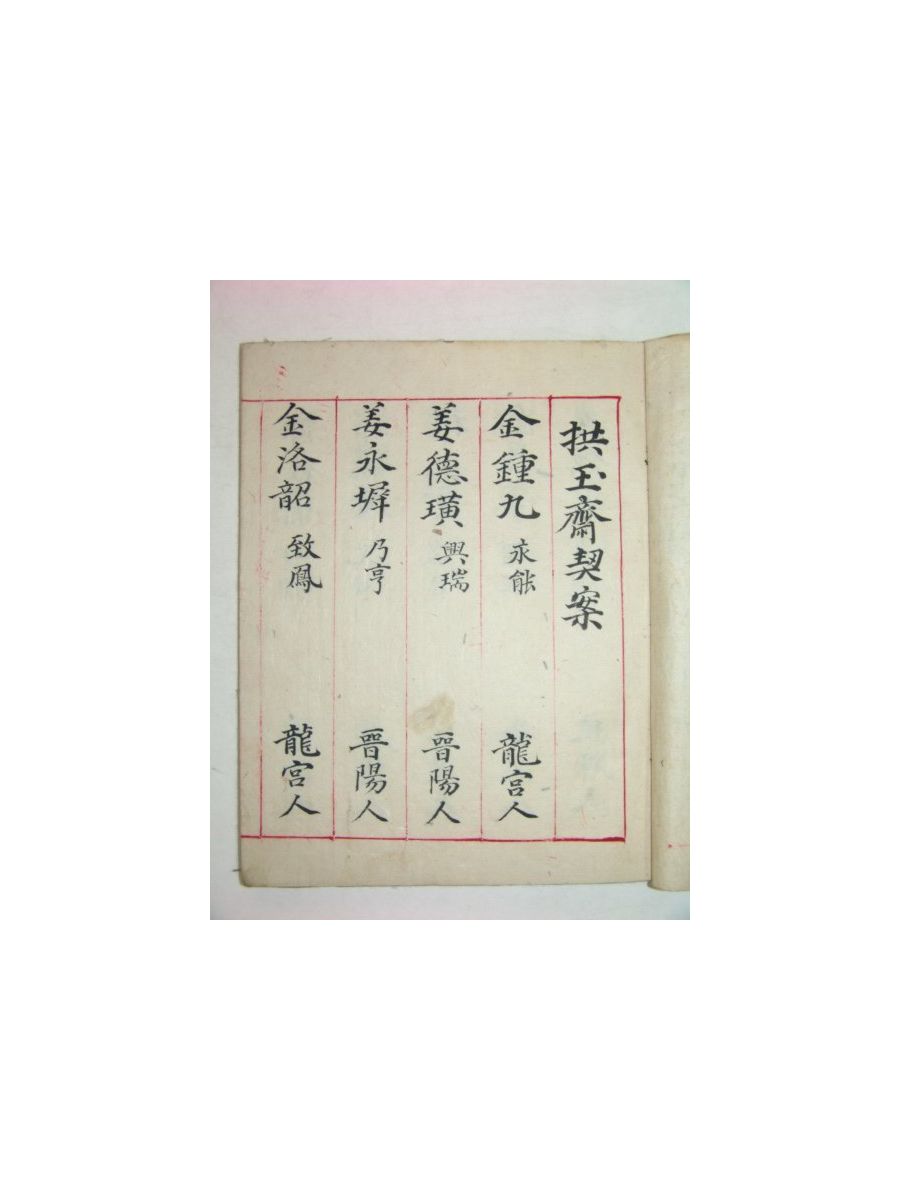 拱玉齋契案
金鍾九 永能 龍宮人
姜德璜 興瑞 晉陽人
姜永墀 乃亨 晉陽人
金洛韶 致鳳 龍宮人